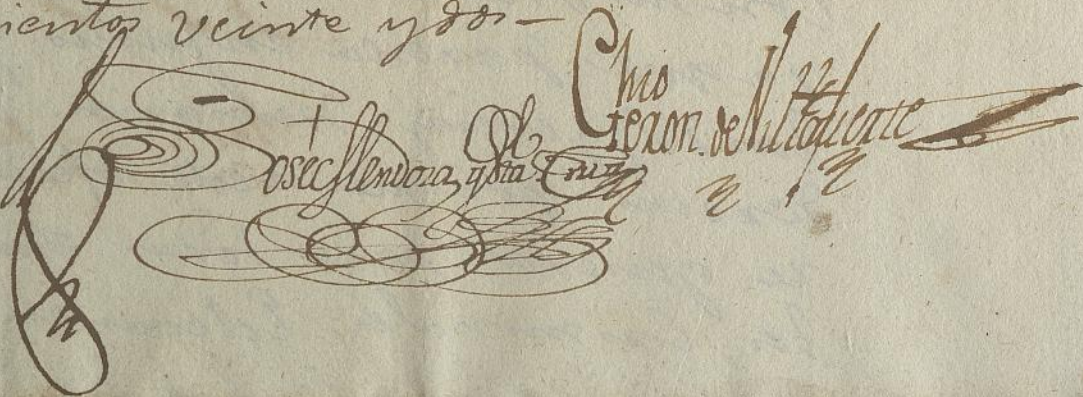 ientos veinte y dos
Joseph Mendoza y sta Cruz
Geron. de Villafuerte